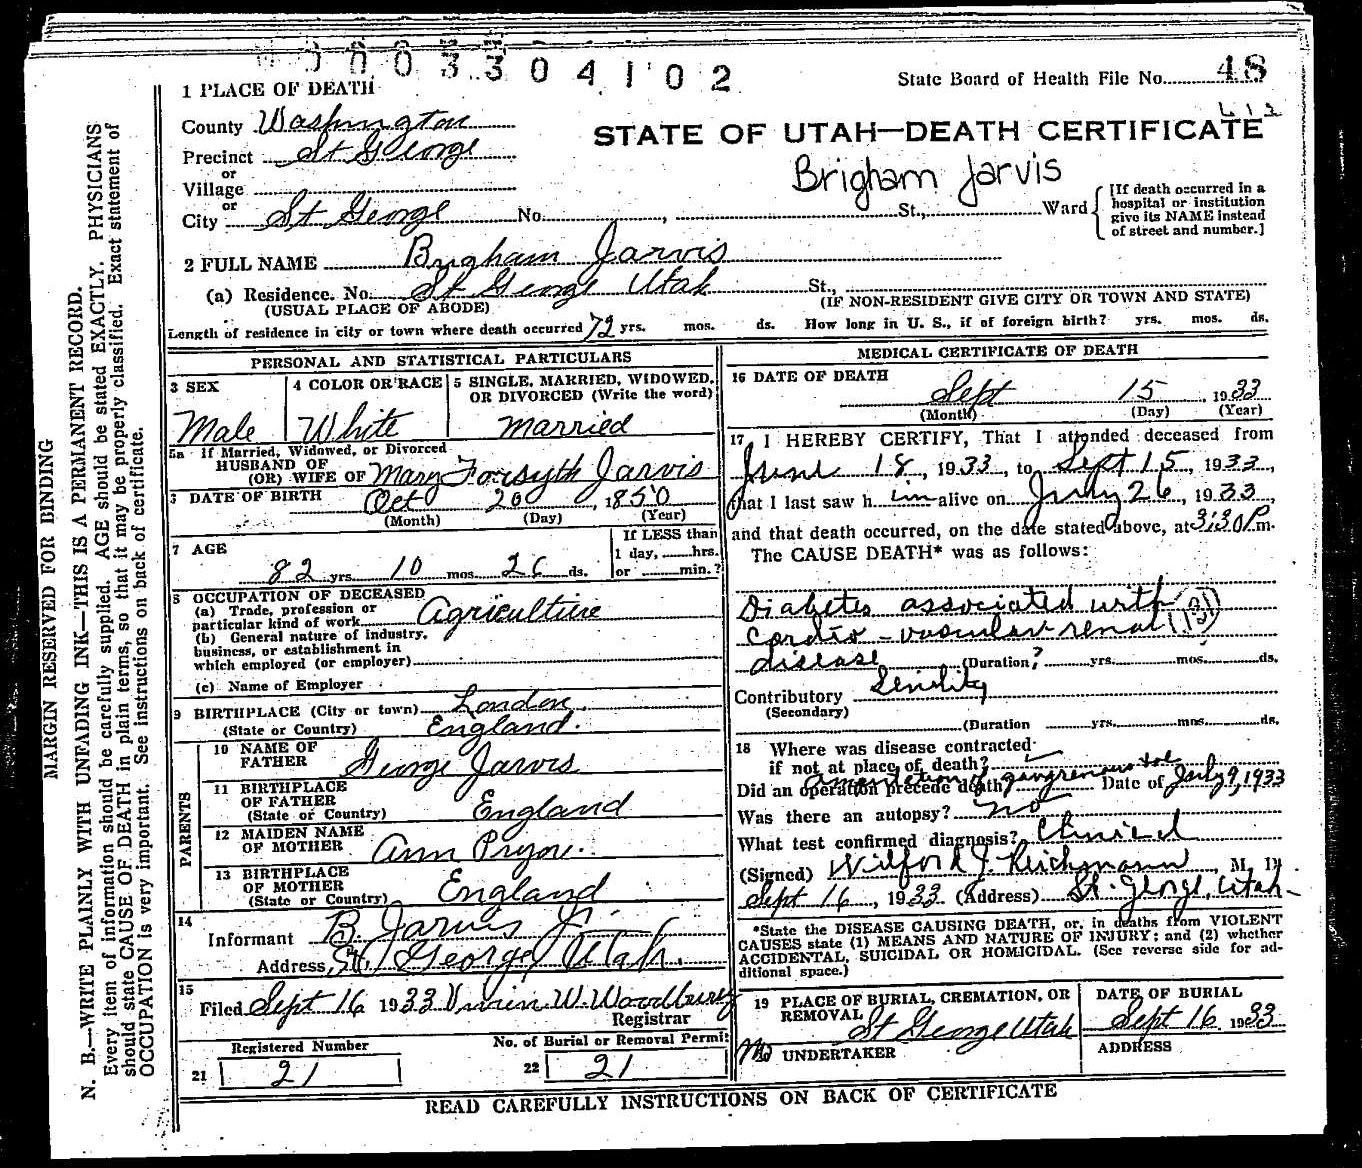 0003304102
State Board of Health File No. 48
1 PLACE OF DEATH
County Washington
STATE OF UTAH—DEATH CERTIFICATE
Precinct St George
Brigham Jarvis
or
Village
or
City St George No. , St., Ward
[If death occurred in a
hospital or institution
give its NAME instead
of street and number.]
2 FULL NAME Brigham Jarvis
(a) Residence. No. St George Utah St.,
(USUAL PLACE OF ABODE) (IF NON-RESIDENT GIVE CITY OR TOWN AND STATE)
Length of residence in city or town where death occurred 72 yrs. mos. ds. How long in U. S., if of foreign birth? yrs. mos. ds.
PERSONAL AND STATISTICAL PARTICULARS
3 SEX
Male
4 COLOR OR RACE
White
5 SINGLE, MARRIED, WIDOWED,
OR DIVORCED (Write the word)
Married
5a If Married, Widowed, or Divorced
HUSBAND OF
(OR) WIFE OF Mary Forsyth Jarvis
6 DATE OF BIRTH Oct 20, 1850
(Month) (Day) (Year)
7 AGE
82 yrs. 10 mos. 26 ds.
If LESS than
1 day, hrs.
or min.?
8 OCCUPATION OF DECEASED
(a) Trade, profession or
particular kind of work Agriculture
(b) General nature of industry,
business, or establishment in
which employed (or employer)
(c) Name of Employer
9 BIRTHPLACE (City or town) London,
(State or Country) England.
PARENTS
10 NAME OF
FATHER George Jarvis
11 BIRTHPLACE
OF FATHER
(State or Country) England
12 MAIDEN NAME
OF MOTHER Ann Pryor.
13 BIRTHPLACE
OF MOTHER
(State or Country) England
14
Informant B. Jarvis Jr.
Address, St. George, Utah.
15
Filed Sept 16 1933 W. Woodbury
Registrar
Registered Number
21 21
No. of Burial or Removal Permit
22 21
MEDICAL CERTIFICATE OF DEATH
16 DATE OF DEATH
Sept 15, 1933
(Month) (Day) (Year)
17 I HEREBY CERTIFY, That I attended deceased from
June 18, 1933, to Sept 15, 1933,
that I last saw him alive on July 26, 1933,
and that death occurred, on the date stated above, at 3:30 P.m.
The CAUSE DEATH* was as follows:
Diabetes associated with
Cardio-vascular renal (131)
disease (Duration ? yrs. mos. ds.
Contributory Senility
(Secondary)
(Duration yrs. mos. ds.
18 Where was disease contracted
if not at place of death?
Did an operation precede death? Amputation of gangrenous toe Date of July 9, 1933
Was there an autopsy? no
What test confirmed diagnosis? Clinical
(Signed) Wilford J. Reichmann, M. D.
Sept 16, 1933 (Address) St. George, Utah
*State the DISEASE CAUSING DEATH, or, in deaths from VIOLENT
CAUSES state (1) MEANS AND NATURE OF INJURY; and (2) whether
ACCIDENTAL, SUICIDAL OR HOMICIDAL. (See reverse side for ad-
ditional space.)
19 PLACE OF BURIAL, CREMATION, OR
REMOVAL St George Utah
DATE OF BURIAL
Sept 16 1933
UNDERTAKER
ADDRESS
READ CAREFULLY INSTRUCTIONS ON BACK OF CERTIFICATE
MARGIN RESERVED FOR BINDING
N. B.—WRITE PLAINLY WITH UNFADING INK—THIS IS A PERMANENT RECORD.
Every item of information should be carefully supplied. AGE should be stated EXACTLY. PHYSICIANS
should state CAUSE OF DEATH in plain terms, so that it may be properly classified. Exact statement of
OCCUPATION is very important. See instructions on back of certificate.